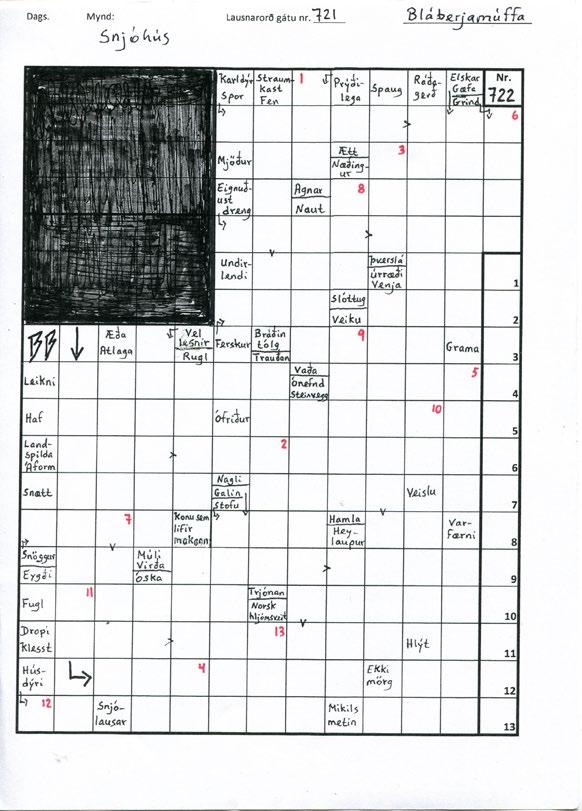 Dags.
Mynd:
Lausnarorð gátu nr. 721
Bláberjamúffa
Snjóhús
Karldýr
Spor
Straum-
kast
Fen
1
Prýði-
lega
Spaug
Ráða-
gerð
Elskar
Gæfa
Grind
Nr.
722
6
Mjöður
Ætt
Næðing-
ur
3
Eignuð-
ust
dreng
Agnar
Naut
8
Undir-
lendi
Þverslá
úrræði
Venja
1
Slóttug
Veiku
2
BB
Æða
Atlaga
Vel
lesnir
Rugl
Ferskur
Bráðin
tólg
Trauðan
9
Grama
3
Leikni
Vaða
ónefnd
Steinvegg
5
4
Haf
Ófriður
10
5
Land-
spilda
Áform
2
6
Snætt
Nagli
Galin
Stofu
Veislu
7
7
Konu sem
lifir
makann
Hamla
Hey-
laupur
Var-
færni
8
Snöggur
Eygði
Múli
Virða
óska
9
Fugl
11
Trjónan
Norsk
hljómsveit
10
Dropi
Klesst
13
Hlýt
11
Hús-
dýri
4
Ekki
mörg
12
12
Snjó-
lausar
Mikils
metin
13